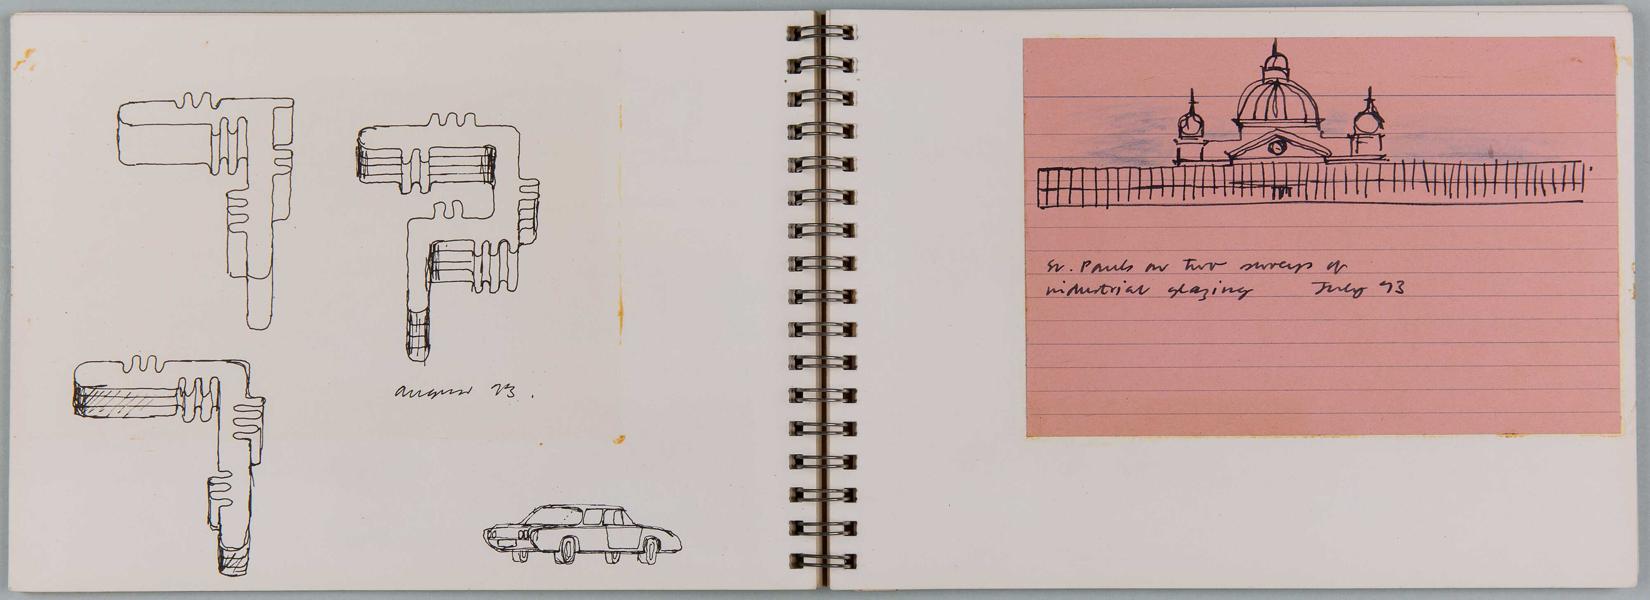 August 73.
St. Pauls on two storeys of
industrial glazing July 73